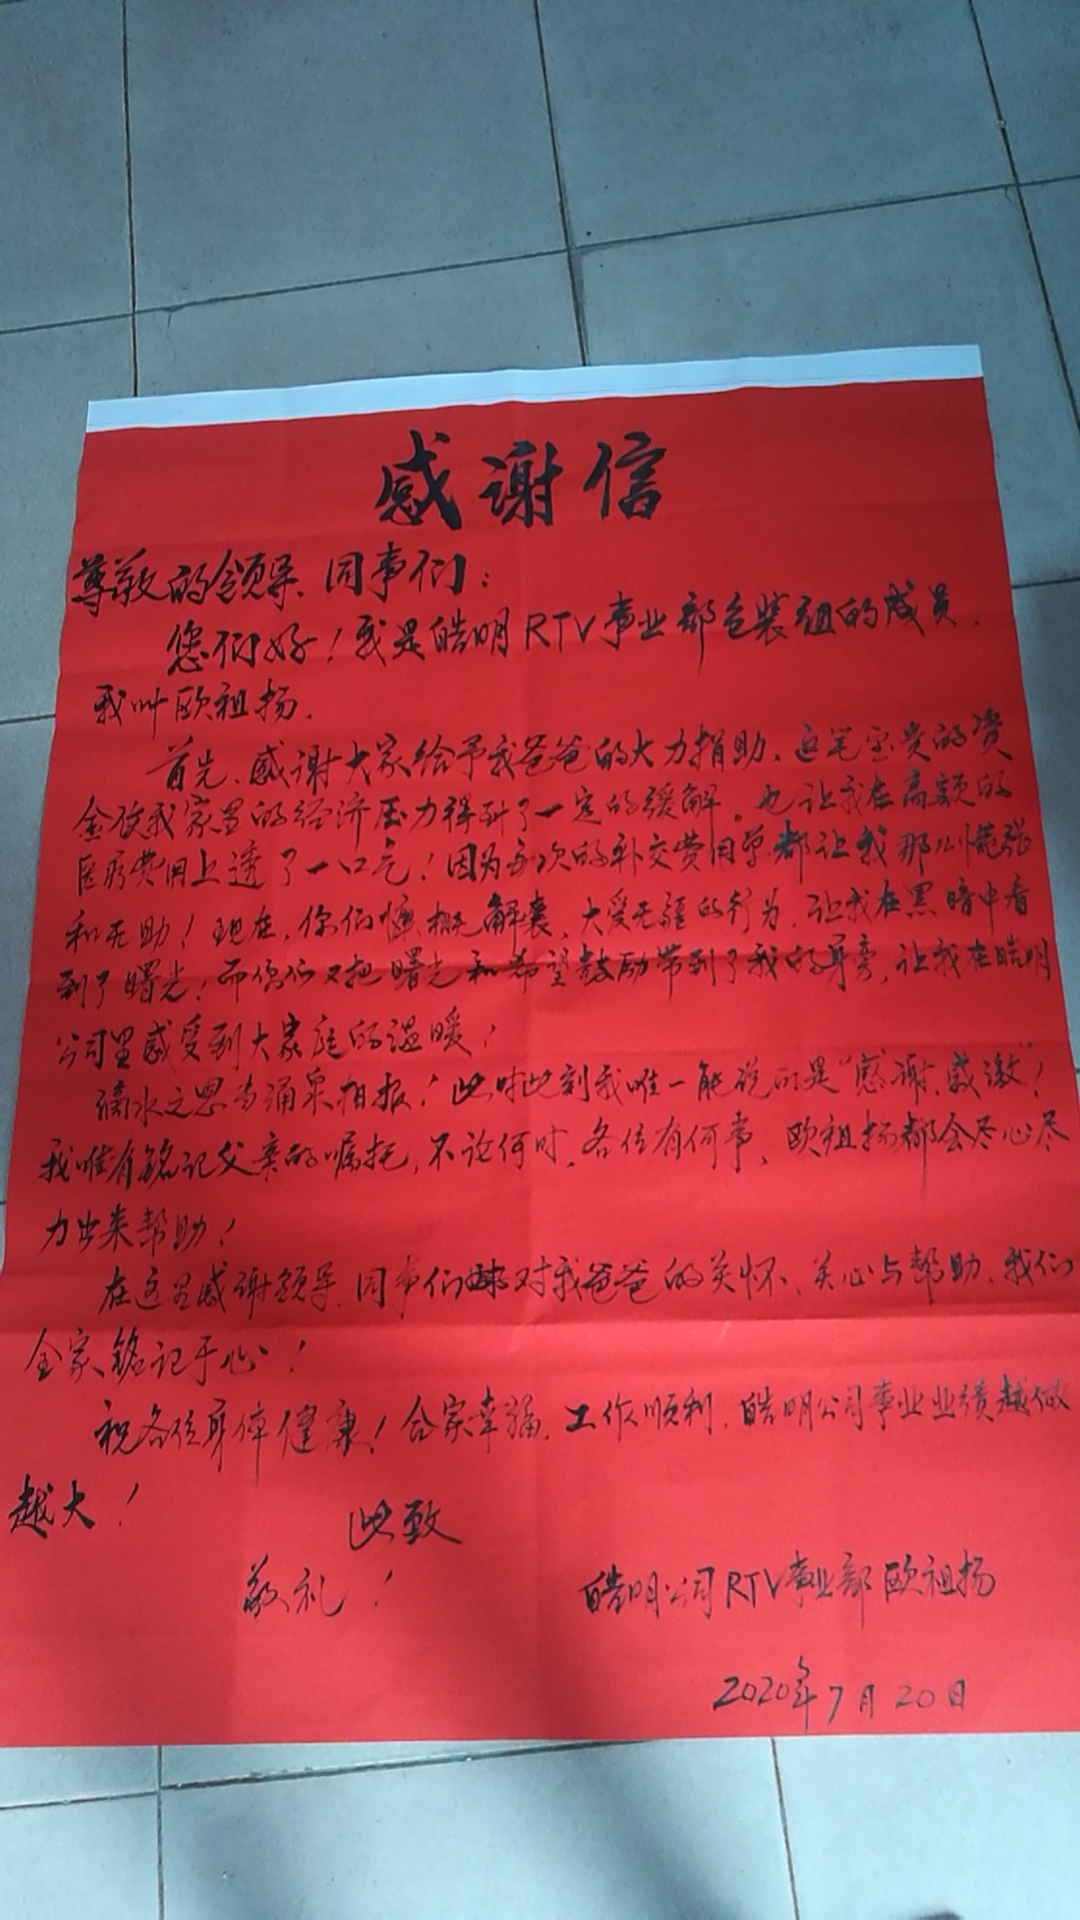 感谢信
尊敬的领导、同事们：
您们好！我是皓明RTV事业部包装组的成员.
我叫欧祖扬.
首先、感谢大家给予我爸爸的大力捐助、这笔宝贵的资
金使我家里的经济压力得到了一定的缓解。也让我在高额的
医疗费用上透了一口气！因为每次的补交费用单都让我那么慌张
和无助！现在，你们慷概解囊、大爱无疆的行为、让我在黑暗中看
到了曙光！而你们又把曙光和希望鼓励带到了我的身旁，让我在皓明
公司里感受到大家庭的温暖！
滴水之恩当涌泉相报！此时此刻我唯一能说的是“感谢、感激”！
我唯有铭记父亲的嘱托，不论何时、各位有何事、欧祖扬都会尽心尽
力出来帮助！
在这里感谢领导、同事们对我爸爸的关怀、关心与帮助、我们
全家铭记于心！
祝各位身体健康！合家幸福、工作顺利、皓明公司事业业绩越做
越大！
此致
敬礼！
皓明公司RTV事业部欧祖扬
2020年7月20日